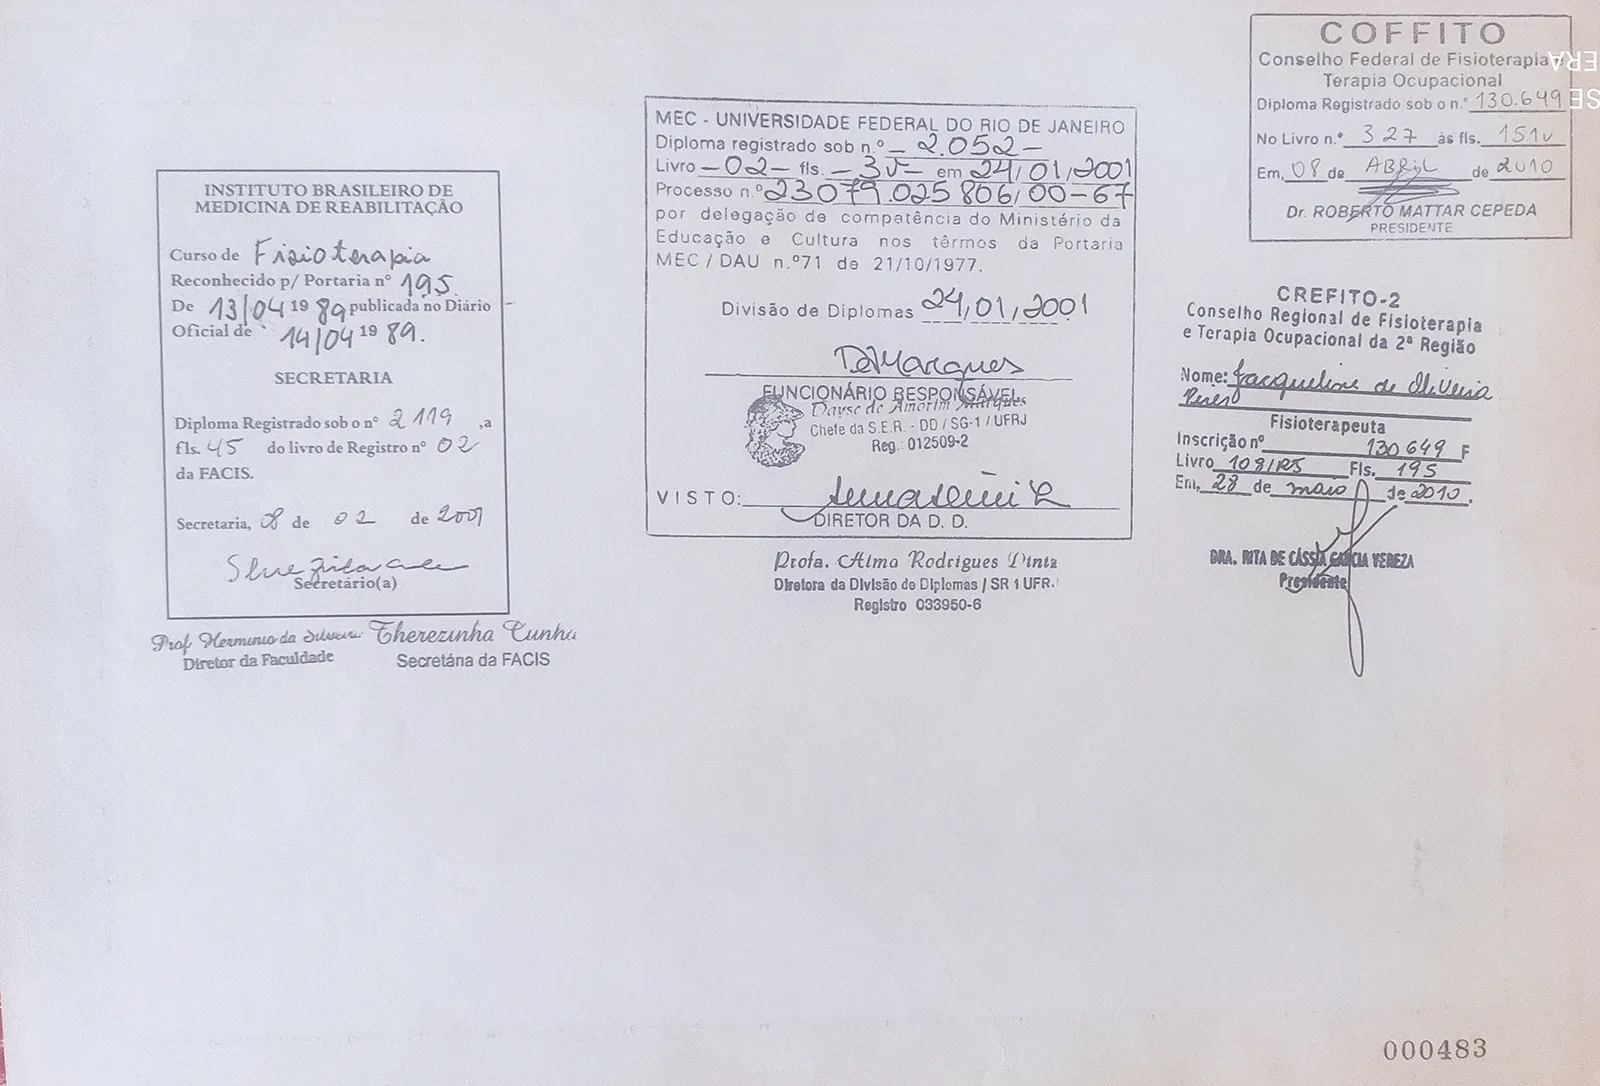 INSTITUTO BRASILEIRO DE
MEDICINA DE REABILITAÇÃO
Curso de Fisioterapia
Reconhecido p/ Portaria nº 195
De 13/04 19 89 publicada no Diário
Oficial de 14/04 19 89.
SECRETARIA
Diploma Registrado sob o nº 2119 ,a
fls. 45 do livro de Registro nº 02
da FACIS.
Secretaria, 08 de 02 de 2001
Secretário(a)
Prof. Herminio da Silveira
Diretor da Faculdade
Therezinha Cunha
Secretária da FACIS
MEC - UNIVERSIDADE FEDERAL DO RIO DE JANEIRO
Diploma registrado sob n.º - 2.052 -
Livro - 02 - fls. - 3v - em 24/01/2001
Processo n.º 23079.025806/00-67
por delegação de competência do Ministério da
Educação e Cultura nos têrmos da Portaria
MEC / DAU n.º71 de 21/10/1977.
Divisão de Diplomas 24/01/2001
DAMarques
FUNCIONÁRIO RESPONSÁVEL
Dayse de Amorim Marques
Chefe da S.E.R. - DD / SG-1 / UFRJ
Reg.: 012509-2
VISTO:
DIRETOR DA D. D.
Profa. Alma Rodrigues Diniz
Diretora da Divisão de Diplomas / SR 1 UFR.
Registro 033950-6
COFFITO
Conselho Federal de Fisioterapia
Terapia Ocupacional
Diploma Registrado sob o n.º 130.649
No Livro n.º 327 às fls. 151v
Em, 08 de ABRIL de 2010
Dr. ROBERTO MATTAR CEPEDA
PRESIDENTE
ERA
SE
CREFITO-2
Conselho Regional de Fisioterapia
e Terapia Ocupacional da 2ª Região
Nome: Jacqueline de Oliveira
Peres
Fisioterapeuta
Inscrição nº 130649 F
Livro 109/RS Fls. 195
Em, 28 de maio de 2010.
DRA. RITA DE CÁSSIA GARCIA VEREZA
Presidente
000483